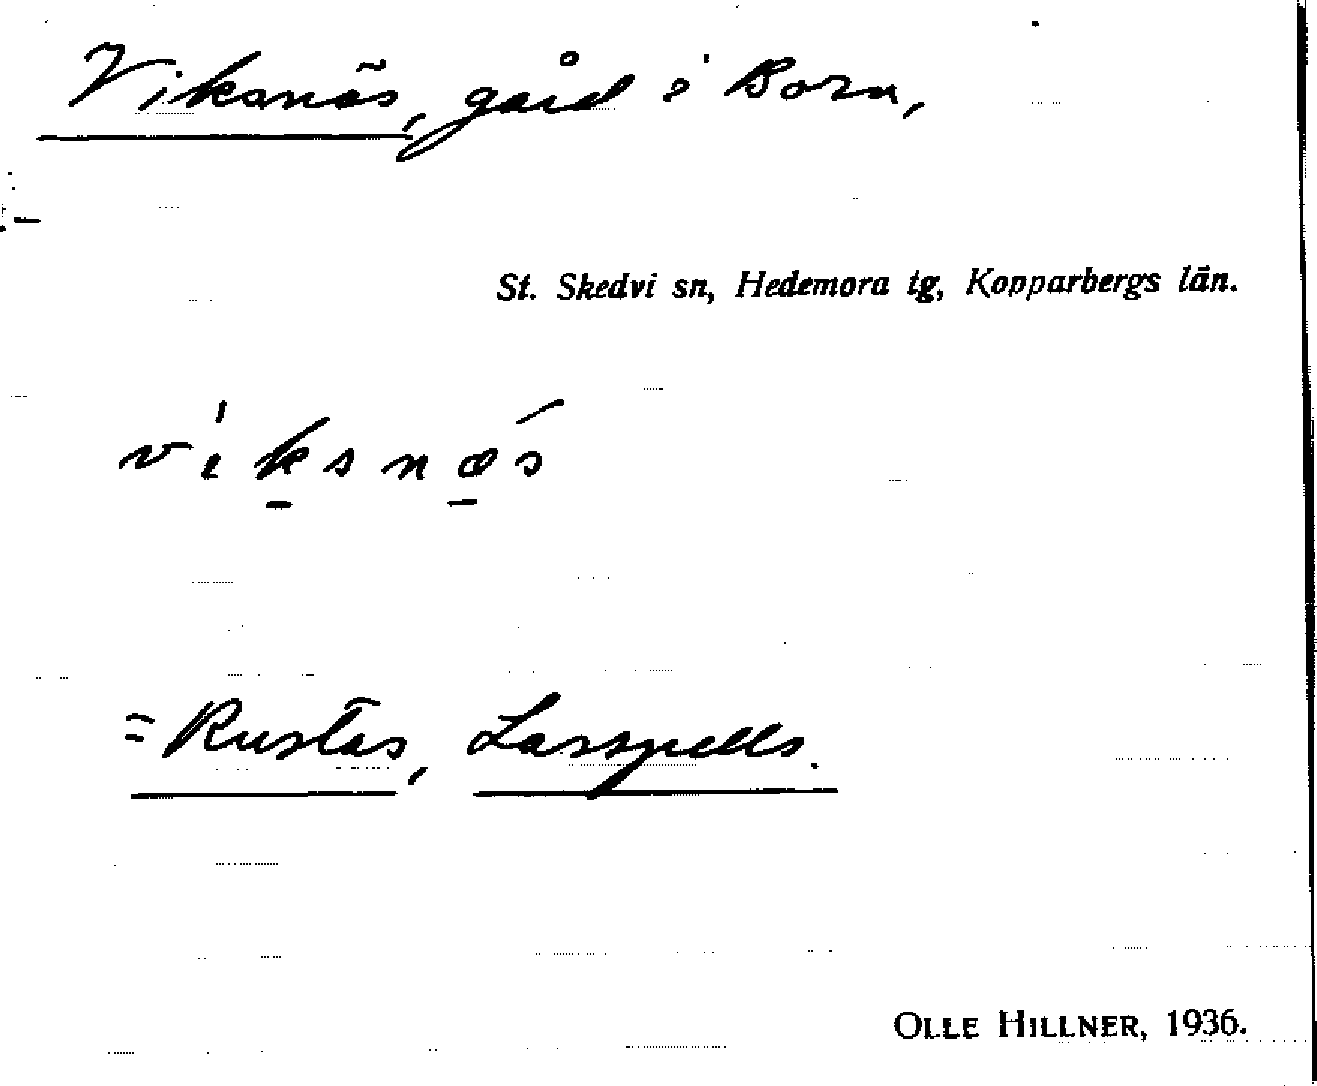 Viksnäs, gård i Born,
St. Skedvi sn, Hedemora tg, Kopparbergs län.
viksnæs
= Rustäs, Larspells.
OLLE HILLNER, 1936.